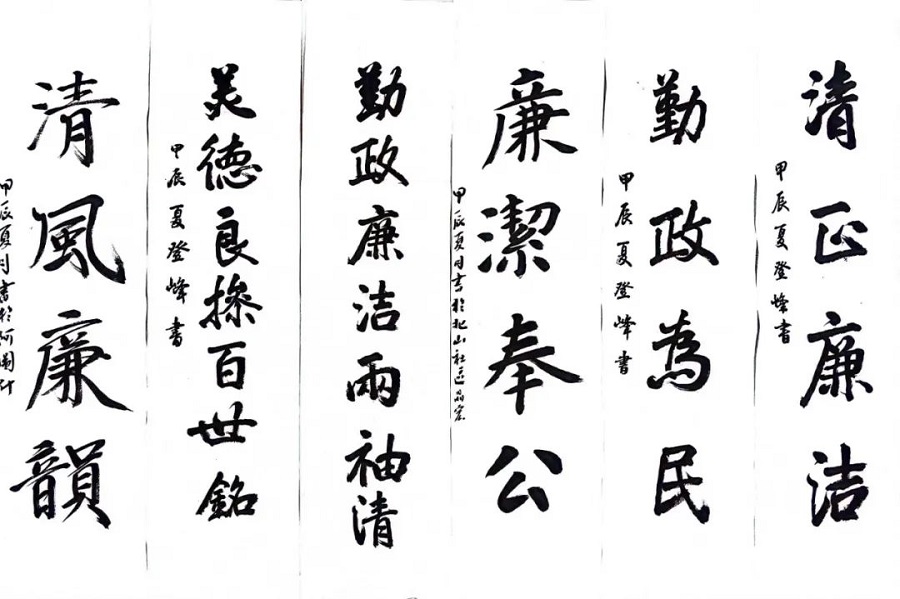 清正廉洁
甲辰夏登峰書
勤政為民
甲辰夏登峰书
廉潔奉公
甲辰夏月書於北山社区
勤政廉洁兩袖清
美德良操百世銘
甲辰夏登峰书
清風廉韻
甲辰夏月書於阿图什